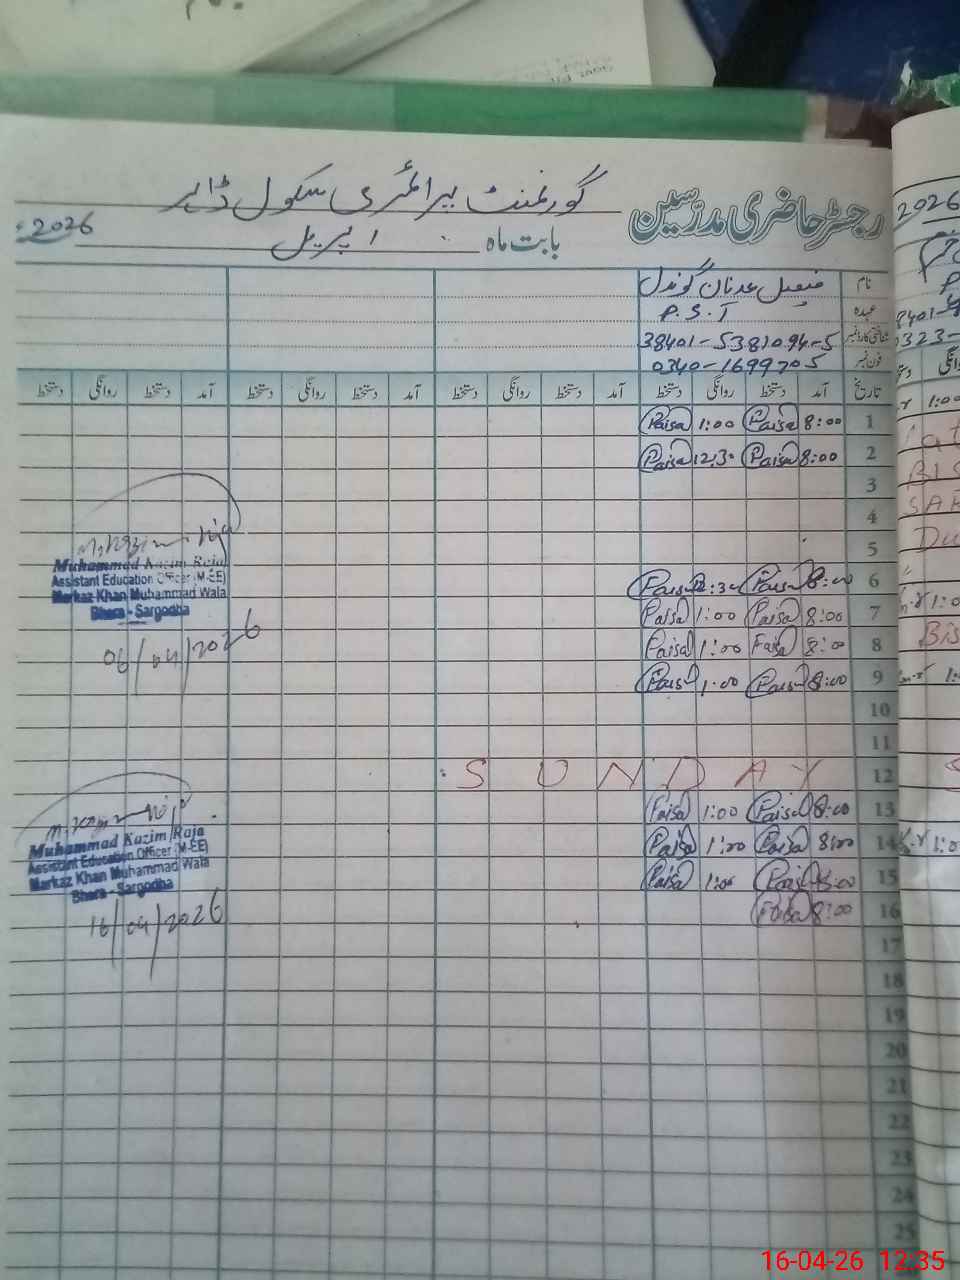 گورنمنٹ پرائمری سکول ڈاہر
رجسٹر حاضری مدرسین
بابت ماہ اپریل 2026ء
نام فیصل عدنان گوندل
عہدہ P.S.T
شناختی کارڈ نمبر 38401-5381094-5
فون نمبر 0340-1699705
تاریخ آمد دستخط روانگی دستخط آمد دستخط روانگی دستخط آمد دستخط روانگی دستخط
1 8:00 Faisal 1:00 Faisal
2 8:00 Faisal 12:30 Faisal
3
4
5
6 8:00 Faisal 12:30 Faisal
7 8:00 Faisal 1:00 Faisal
8 8:00 Faisal 1:00 Faisal
9 8:00 Faisal 1:00 Faisal
10
11
12 SUNDAY
13 8:00 Faisal 1:00 Faisal
14 8:00 Faisal 1:00 Faisal
15 8:00 Faisal 1:00 Faisal
16 8:00 Faisal
17
18
19
20
21
22
23
24
25
M. Kazim Raja
Muhammad Kazim Raja
Assistant Education Officer (M-EE)
Markaz Khan Muhammad Wala
Bhera - Sargodha
06/04/2026
M. Kazim Raja
Muhammad Kazim Raja
Assistant Education Officer (M-EE)
Markaz Khan Muhammad Wala
Bhera - Sargodha
16/04/2026
2026
38401-
0323-
1:00
16-04-26 12:35